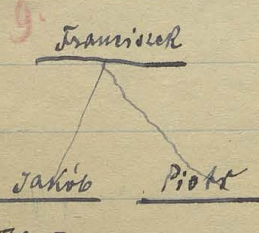 9.
Franciszek
Jakób Piotr